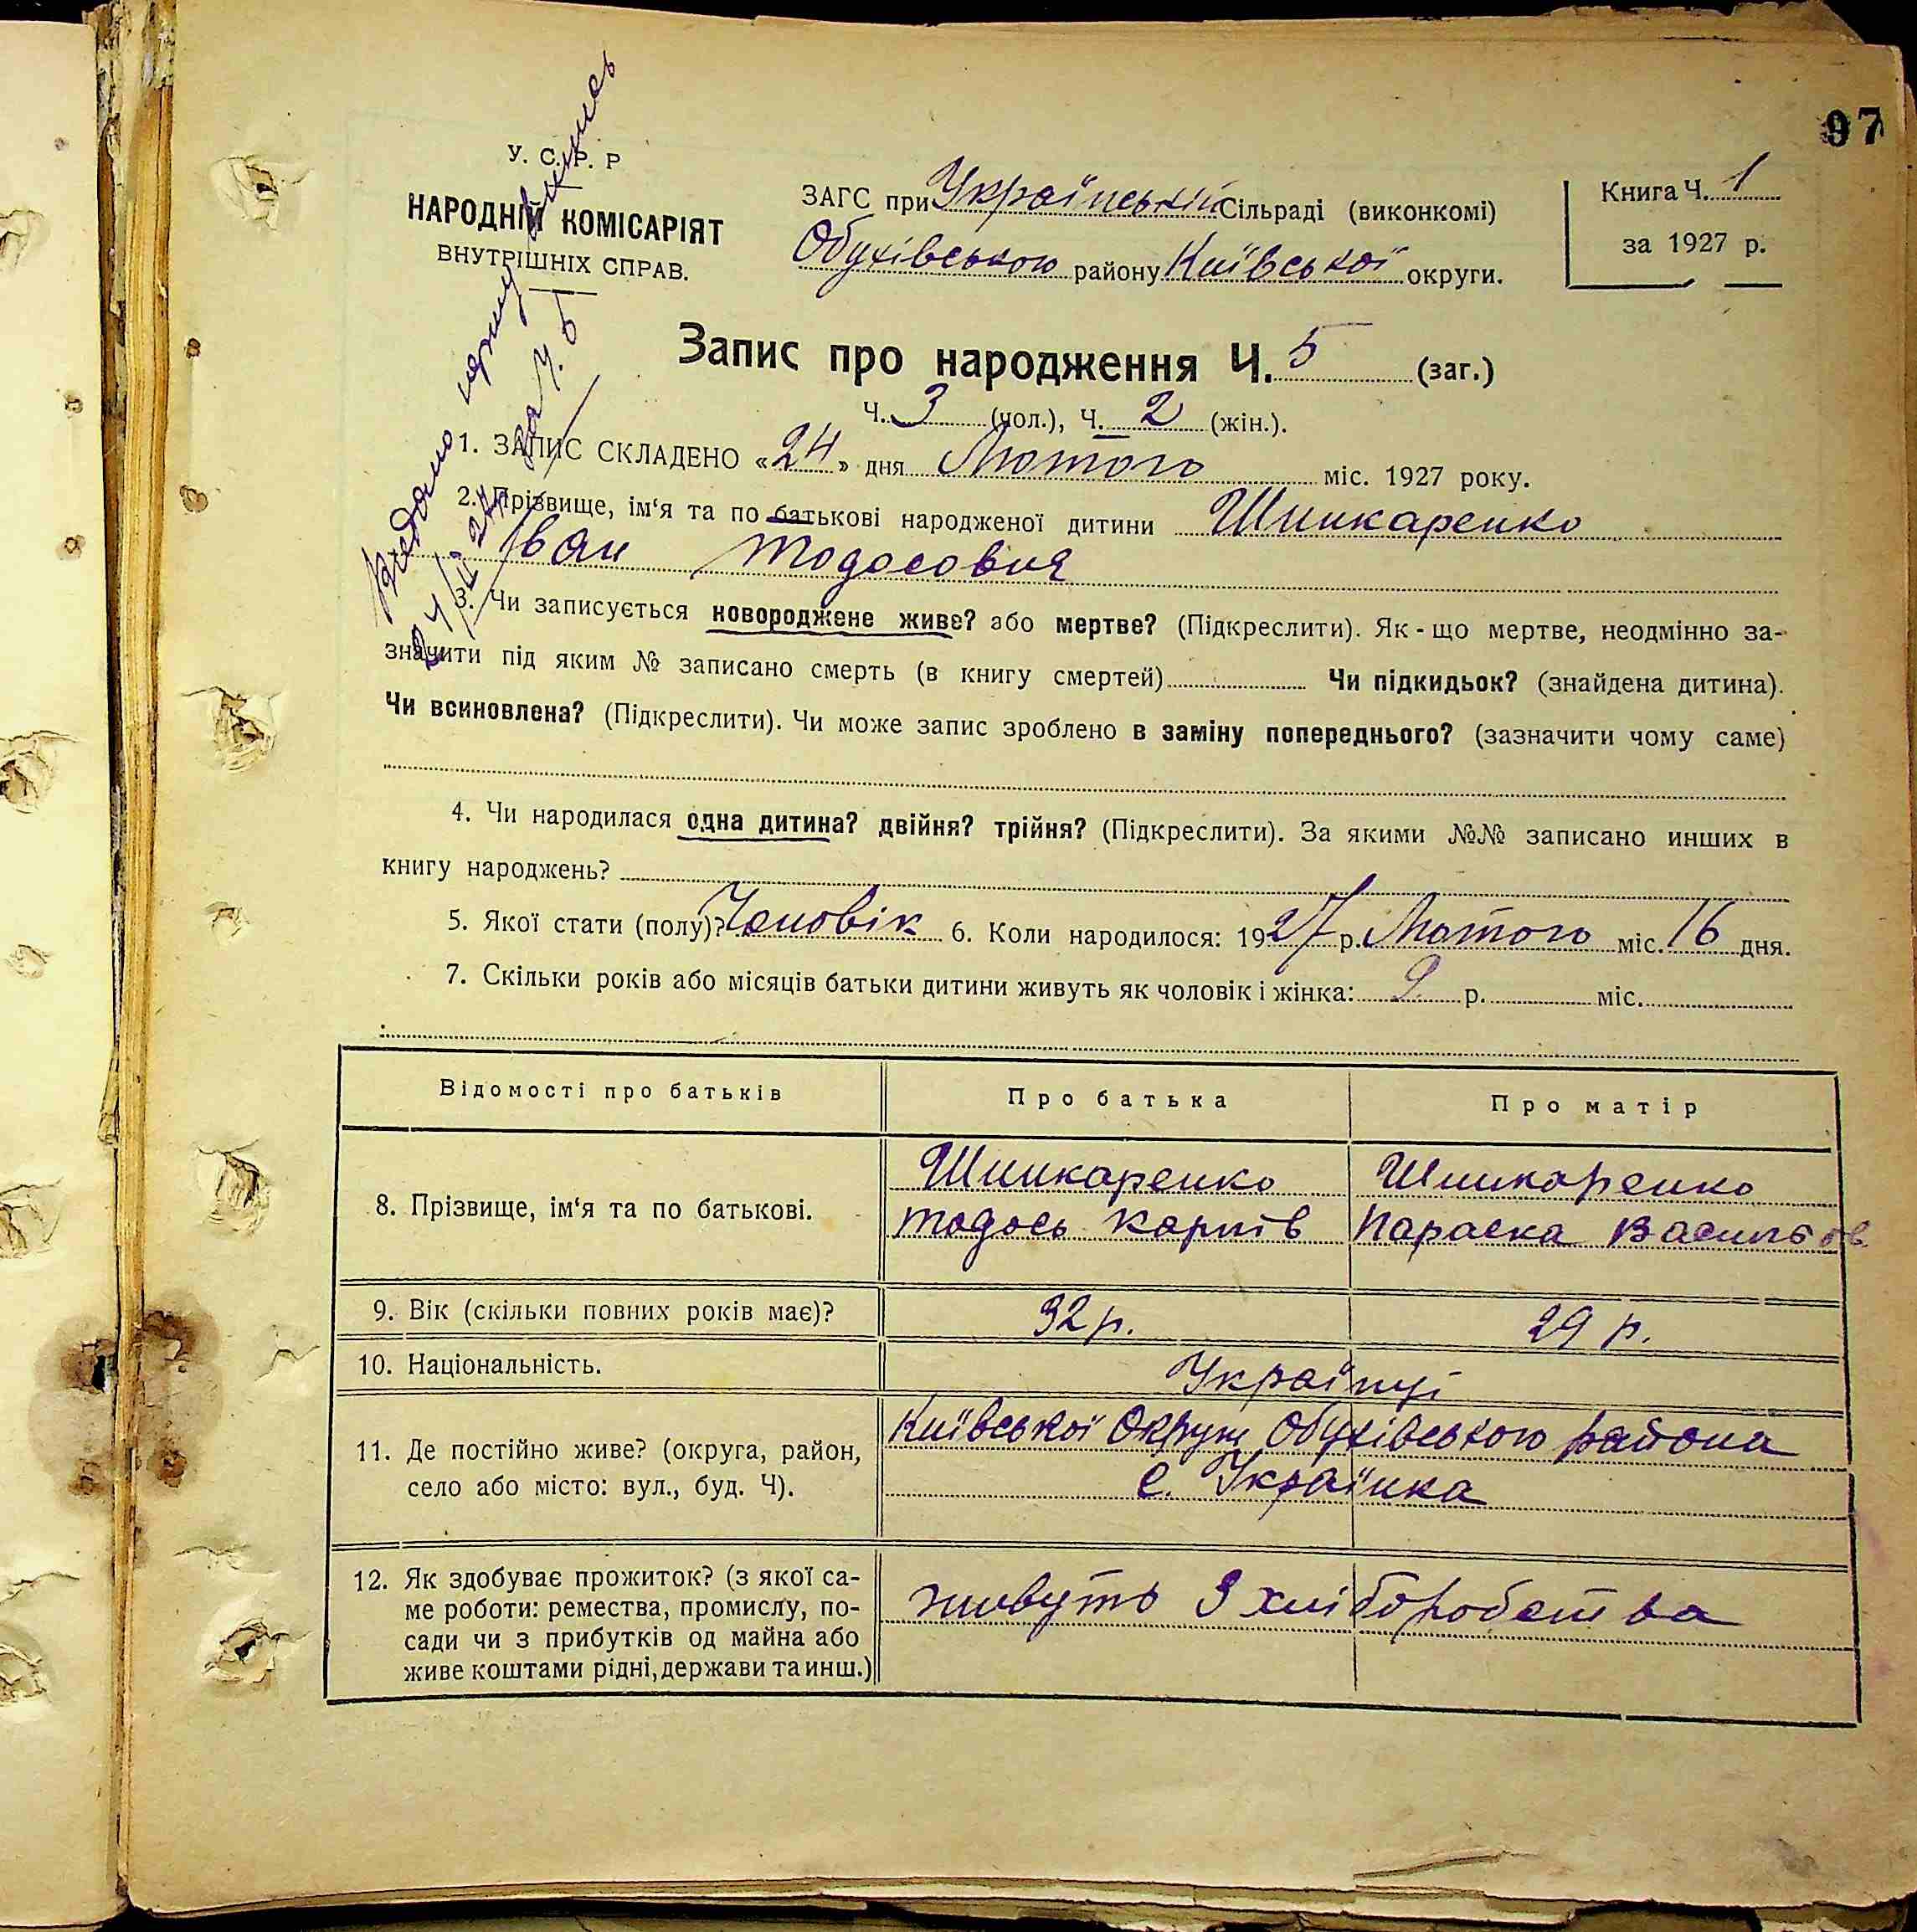 97
У. С. Р. Р
НАРОДНІЙ КОМІСАРІЯТ
ВНУТРІШНІХ СПРАВ.
ЗАГС при Українській Сільраді (виконкомі)
Обухівського району Київської округи.
Книга Ч. 1
за 1927 р.
Видано
24/II-27 за Ч. 5
Запис про народження Ч. 5 (заг.)
Ч. 3 (чол.), Ч. 2 (жін.).
1. ЗАПИС СКЛАДЕНО «24» дня Лютого міс. 1927 року.
2. Прізвище, ім‘я та по батькові народженої дитини Шинкаренко
Іван Тодосовия
3. Чи записується новороджене живе? або мертве? (Підкреслити). Як-що мертве, неодмінно за-
значити під яким № записано смерть (в книгу смертей) Чи підкидьок? (знайдена дитина).
Чи всиновлена? (Підкреслити). Чи може запис зроблено в заміну попереднього? (зазначити чому саме)
4. Чи народилася одна дитина? двійня? трійня? (Підкреслити). За якими №№ записано инших в
книгу народжень?
5. Якої стати (полу)? Чоловік 6. Коли народилося: 1927 р. Лютого міс. 16 дня.
7. Скільки років або місяців батьки дитини живуть як чоловік і жінка: 9 р. міс.
Відомості про батьків Про батька Про матір
8. Прізвище, ім‘я та по батькові.
Шинкаренко Шинкаренко
Тодось Карпів Параска Васильов
9. Вік (скільки повних років має)? 32 р. 29 р.
10. Національність. Українці
11. Де постійно живе? (округа, район,
село або місто: вул., буд. Ч).
Київської Округи Обухівського района
с. Українка
12. Як здобуває прожиток? (з якої са-
ме роботи: ремества, промислу, по-
сади чи з прибутків од майна або
живе коштами рідні, держави та инш.)
живуть З хліборобства